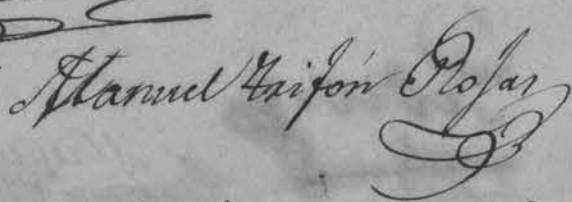 Manuel Trifón Rosas